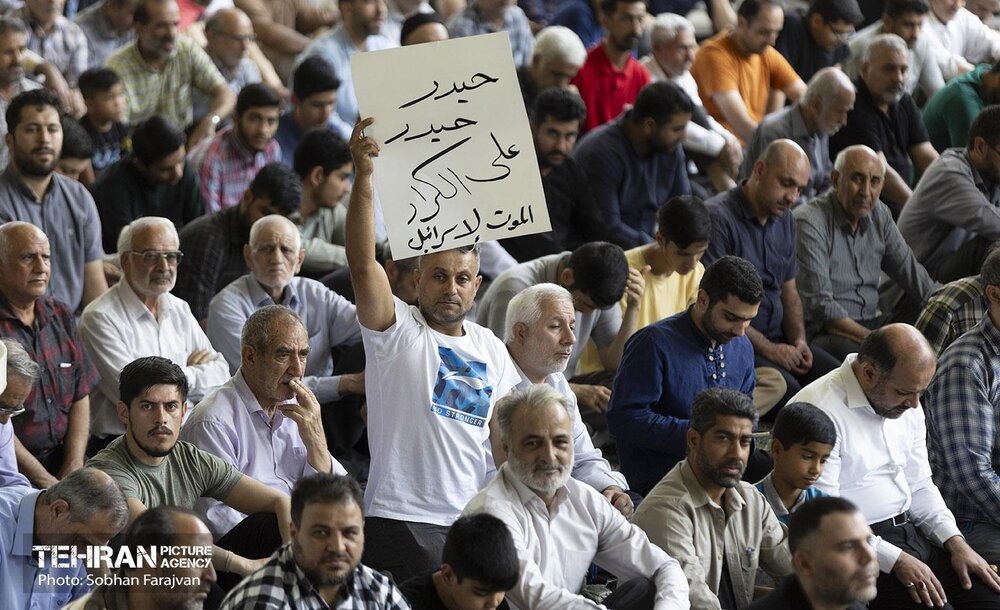 حیدر
حیدر
علی الکرار
الموت لاسرائیل
GO STRONGER
TEHRAN PICTURE AGENCY
Photo: Sobhan Farajvan